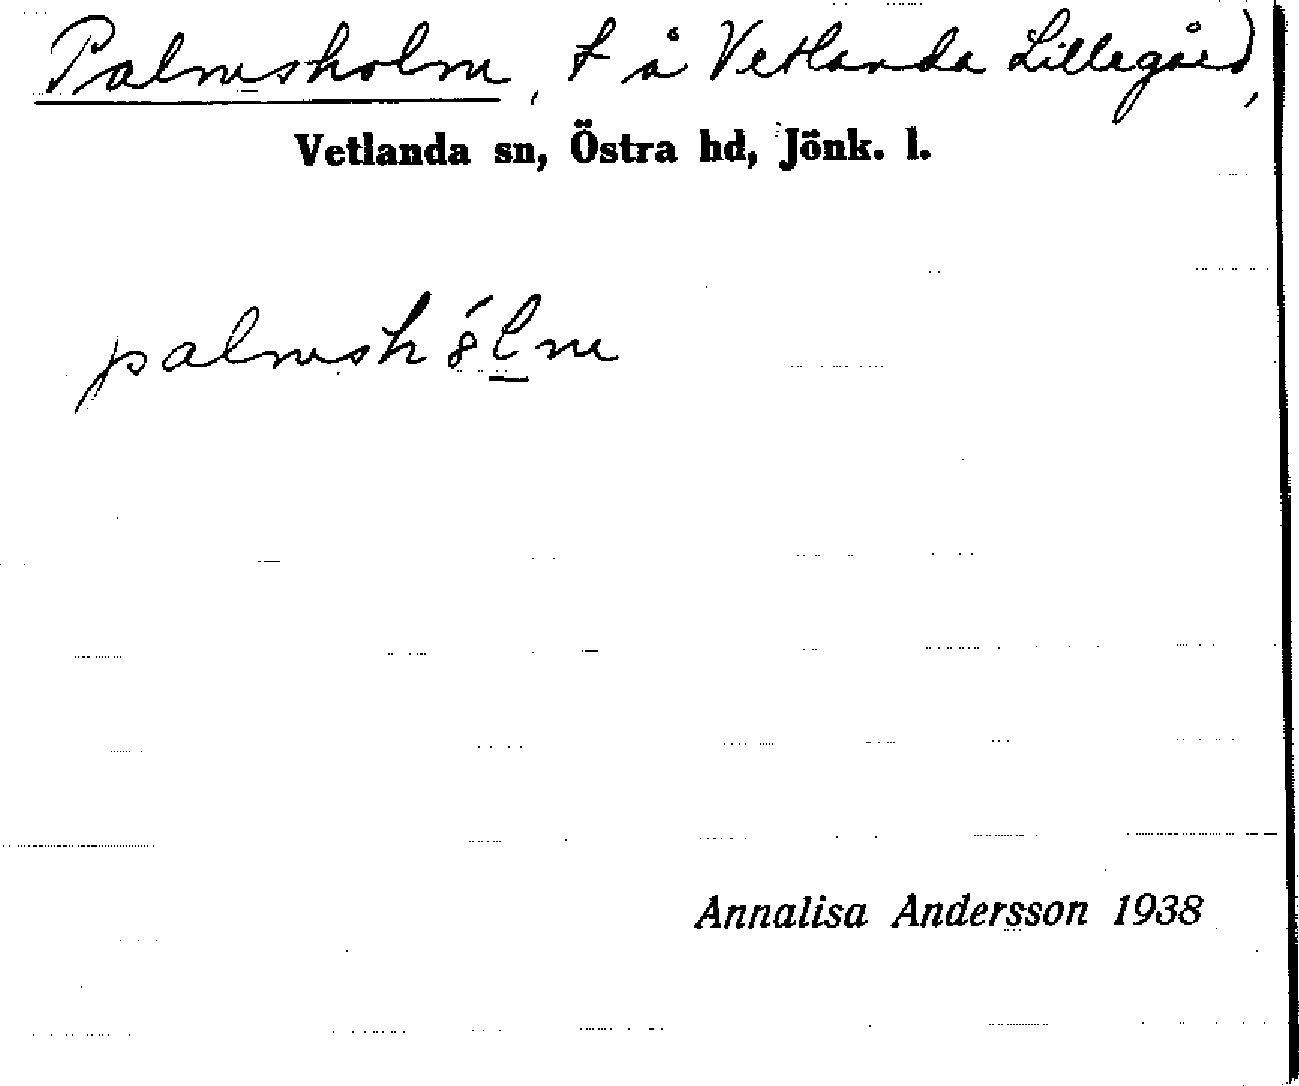 Palmsholm, t å Vetlanda Lillegård,
Vetlanda sn, Östra hd, Jönk. l.
palmshólm
Annalisa Andersson 1938